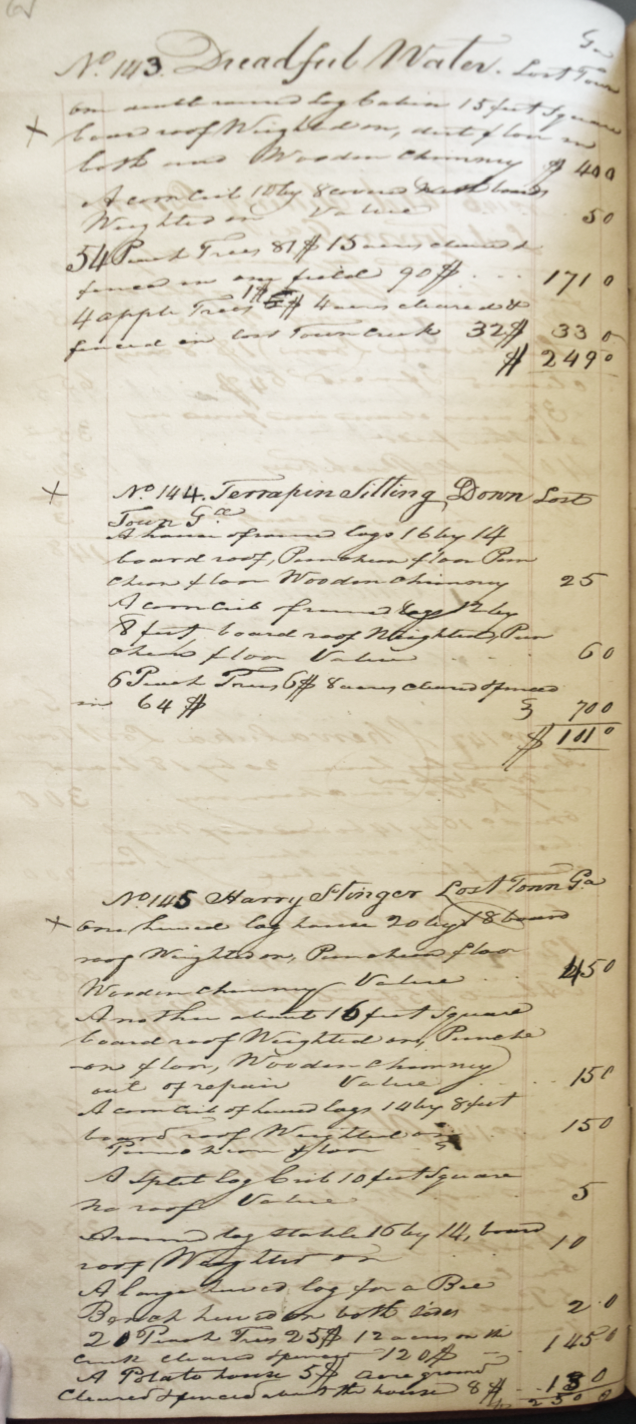 Ga
No. 143. Dreadful Water. Lost Town
One small round log Cabin 15 feet Square
board roof Weighted on, dirt floor in
both and Wooden Chimney $ 40 0
A corn Crib 10 by 8 covered with boards
Weighted on Value 5 0
54 Peach Trees 81$ 15 acres cleared &
fenced in one field 90$ 171 0
4 apple Trees 1$ 4 acres cleared &
fenced in Lost Town Creek 32$ 33 0
$ 249 0
No. 144. Terrapin Sitting Down Lost
Town Ga
A house of round logs 16 by 14
board roof, Puncheon floor Pun
cheon floor Wooden Chimney 25
A corn Crib of round logs 12 by
8 feet board roof Weighted, Pun
cheon floor Value 6 0
6 Peach Trees 6$ 8 acres cleared & fenced
in 64$ 70 0
$ 101 0
No. 145 Harry Stinger Lost Town Ga
One hewed log house 20 by 18 board
roof Weighted on, Puncheon floor
Wooden Chimney Value 45 0
Another about 16 feet Square
board roof Weighted on, Punche
on floor, Wooden Chimney
out of repair Value 15 0
A corn Crib of hewed logs 14 by 8 feet
board roof Weighted on 15 0
Puncheon floor
A Split log Crib 10 feet Square
no roof Value 5
A round log stable 16 by 14, board
roof Weighted on 10
A large hewed log for a Bee
Bench hewed on both sides 2 0
20 Peach Trees 25$ 12 acres on the
creek cleared & fenced 120$ 145 0
A Potato house 5$ acre ground
cleared & fenced about the house 8$ 13 0